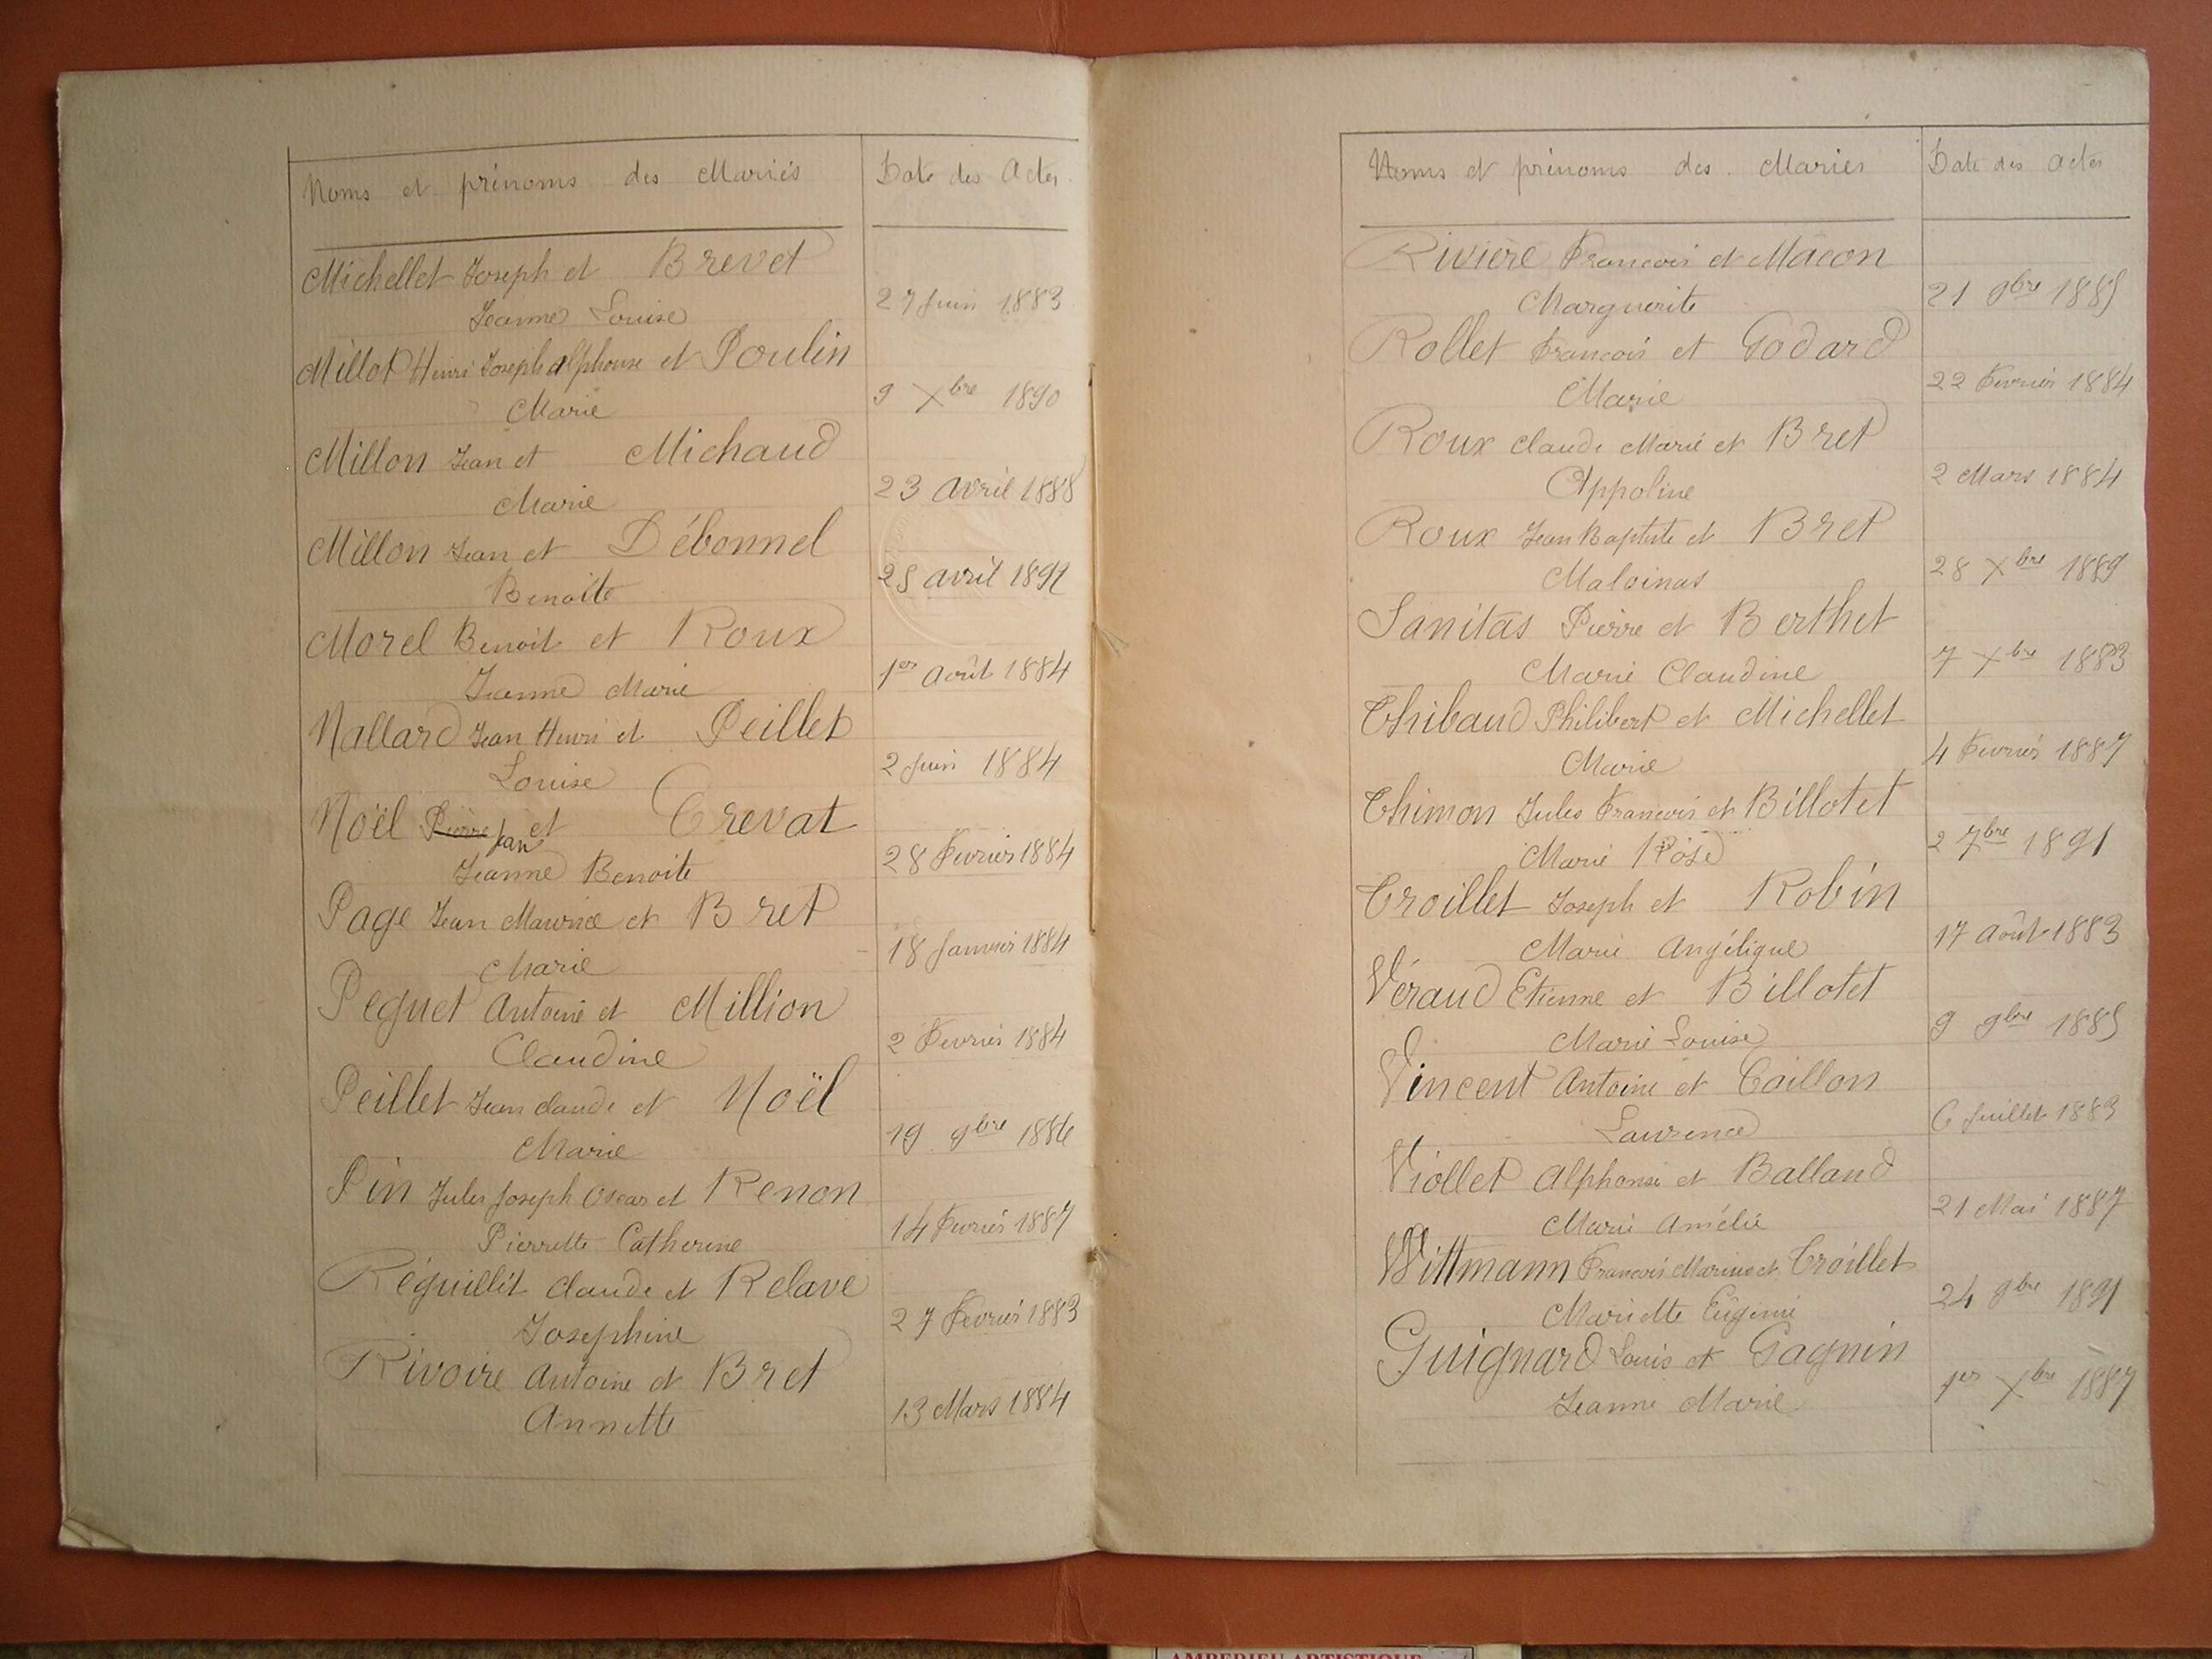 Noms et prénoms des Mariés
Date des Actes
Michellet Joseph et Brevet
Jeanne Louise
27 Juin 1883
Millot Henri Joseph Alphonse et Poulin
Marie
9 Xbre 1890
Millon Jean et Michaud
Marie
23 Avril 1888
Millon Jean et Débonnel
Benoite
25 avril 1892
Morel Benoit et Roux
Jeanne Marie
1er Août 1884
Nallard Jean Henri et Peillet
Louise
2 Juin 1884
Noël Pierre Jean et Crevat
Jeanne Benoite
28 Février 1884
Page Jean Maurice et Bret
Marie
18 Janvier 1884
Peguet Antoine et Million
Claudine
2 Fevrier 1884
Peillet Jean claude et Noël
Marie
19 9bre 1886
Pin Jules Joseph Oscar et Renon
Pierrette Catherine
14 Fevrier 1887
Réguillet Claude et Relave
Josephine
27 Fevrier 1883
Rivoire Antoine et Bret
Annette
13 Mars 1884
Noms et prénoms des Mariés
Date des Actes
Rivière Francois et Mâcon
Marguerite
21 9bre 1885
Rollet Francois et Godard
Marie
22 Fevrier 1884
Roux Claude Marie et Bret
Appoline
2 Mars 1884
Roux Jean Baptiste et Bret
Malvinas
28 Xbre 1889
Sanitas Pierre et Berthet
Marie Claudine
7 Xbre 1883
Thibaud Philibert et Michellet
Marie
4 Fevrier 1887
Thimon Jules Francois et Billotet
Marie Rose
2 7bre 1891
Troillet Joseph et Robin
Marie Angélique
17 Août 1883
Véraud Etienne et Billotet
Marie Louise
9 9bre 1885
Vincent Antoine et Caillon
Laurence
6 Juillet 1883
Viollet Alphonse et Balland
Marie Amélie
21 Mai 1887
Wittmann Francois Marius et Troillet
Mariette Eugénie
24 9bre 1891
Guignard Louis et Gagnin
Jeanne Marie
1er Xbre 1887
AMBERIEU ARTISTIQUE